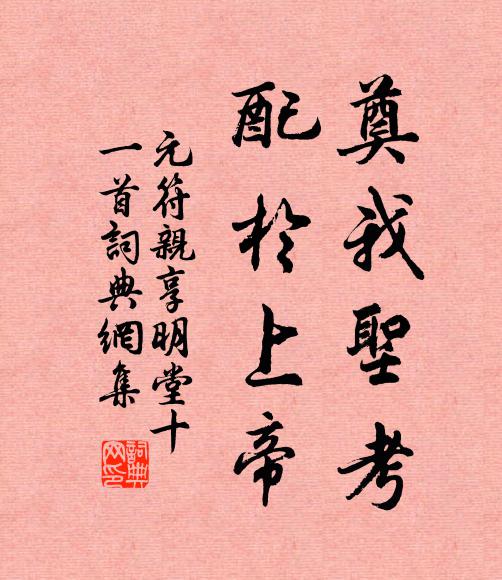 奠我聖考
配於上帝
元符親享明堂十
一首詞典網集
詞典
网印